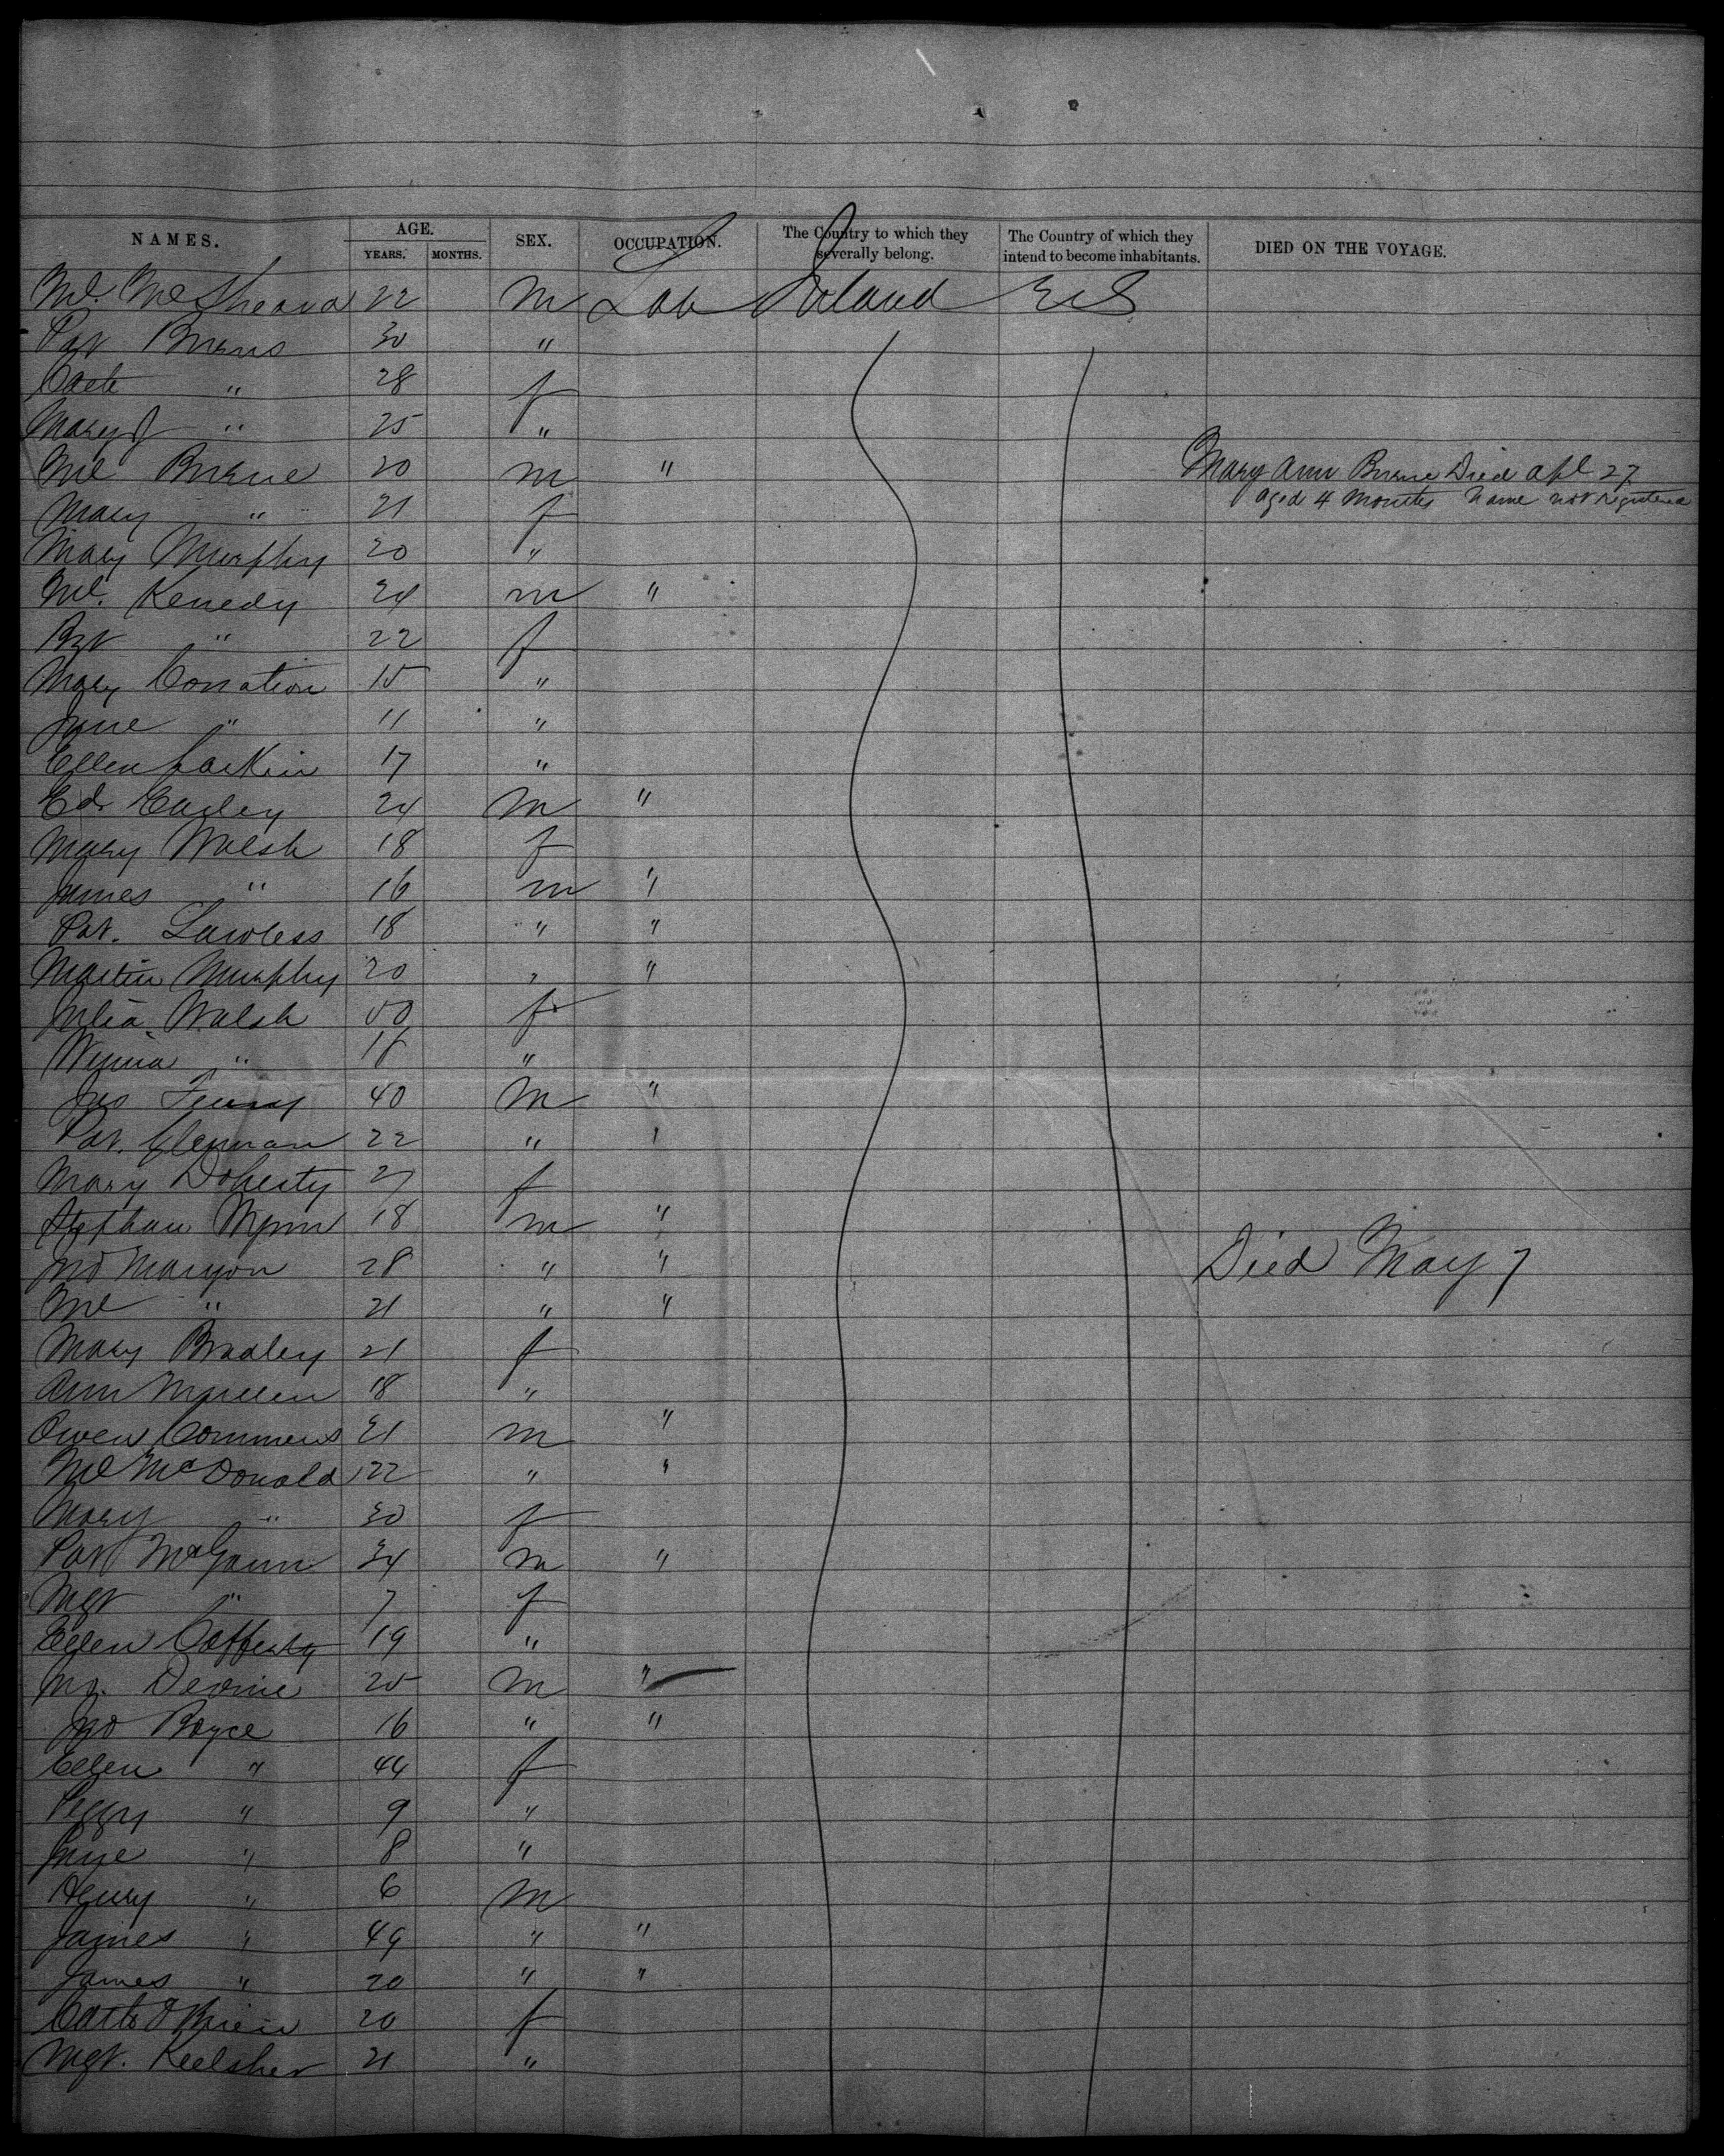 NAMES. AGE. SEX. OCCUPATION. The Country to which they severally belong. The Country of which they intend to become inhabitants. DIED ON THE VOYAGE.
YEARS. MONTHS.
Ml. 22 m Lab Ireland U S
Pat Burns 30 "
Cath " 28 f
Mary J " 25 "
Ml Burne 20 m " Mary Ann Burne Died Apl 27
Aged 4 Months Name not registered
Mary " 21 f
Mary Murphy 20 "
Ml. Kenedy 24 m "
Bgt " 22 f
Mary Conation 15 "
Jane " 11 "
Ellen Larkin 17 "
Ed. Earley 24 m "
Mary Walsh 18 f
James " 16 m "
Pat. Lawless 18 " "
Martin Murphy 20 " "
Julia Walsh 50 f
" 18 "
Jno 40 m "
Pat. Glennan 22 " "
Mary Doherty 27 f
Stephan Wynn 18 m "
Jno Mangon 28 " " Died May 7
Ml " 21 " "
Mary Bradley 21 f
Ann Mullen 18 "
Owen Commens 21 m "
Ml McDonald 22 " "
Mary " 30 f
Pat McGann 34 m "
Mgt " 7 f
Ellen Cafferty 19 "
Jno. Devine 25 m "
Jno Boyce 16 " "
Ellen " 44 f
Peggy " 9 "
Jane " 8 "
Henry " 6 m
James " 49 " "
James " 20 " "
Cath O'Brien 20 f
Mgt. Keelsher 21 "